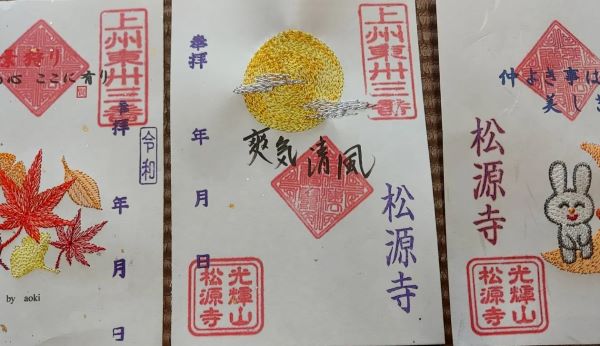 もみじ狩り
心 ここに有り
上州東卅三番
奉拝
令和
年
月
日
by aoki
奉拝
上州東卅三番
爽気清風
年
月
日
松源寺
光輝山
松源寺
仲よき事は
美しき
松源寺
光輝山
松源寺